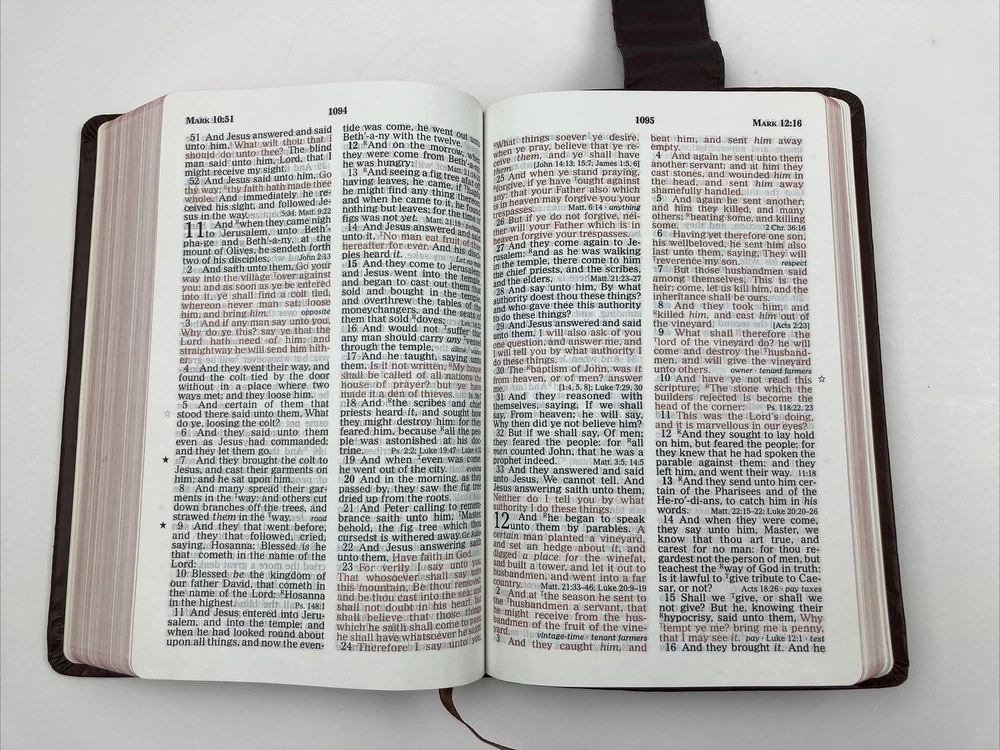 MARK 10:51
1094
51 And Jesus answered and said
unto him, What wilt thou that I
should do unto thee? The blind
man said unto him, Lord, that I
might receive my sight.
52 And Jesus said unto him, Go
thy way; thy faith hath made thee
whole. And immediately he re-
ceived his sight, and followed Je-
sus in the way. 5:34 Matt. 9:22
11 And when they came nigh
to Jerusalem, unto Beth′-
pha-ge and Beth′-a-ny, at the
mount of Olives, he sendeth forth
two of his disciples, John 2:13
2 And saith unto them, Go your
way into the village over against
you: and as soon as ye be entered
into it, ye shall find a colt tied,
whereon never man sat; loose
him, and bring him. opposite
3 And if any man say unto you,
Why do ye this? say ye that the
Lord hath need of him; and
straightway he will send him hith-
er.
4 And they went their way, and
found the colt tied by the door
without in a place where two
ways met; and they loose him.
5 And certain of them that
stood there said unto them, What
do ye, loosing the colt?
6 And they said unto them
even as Jesus had commanded:
and they let them go.
★ 7 And they brought the colt to
Jesus, and cast their garments on
him; and he sat upon him.
8 And many spread their gar-
ments in the way: and others cut
down branches off the trees, and
strawed them in the way. road
★ 9 And they that went before,
and they that followed, cried,
saying, Hosanna; Blessed is he
that cometh in the name of the
Lord:
10 Blessed be the kingdom of
our father David, that cometh in
the name of the Lord: Hosanna
in the highest. Ps. 148:1
11 And Jesus entered into Jeru-
salem, and into the temple: and
when he had looked round about
upon all things, and now the even-
tide was come, he went out unto
Beth′-a-ny with the twelve.
12 And on the morrow, when
they were come from Beth′-a-
he was hungry: Matt. 21:18
13 And seeing a fig tree afar off
having leaves, he came, if haply
he might find any thing thereon:
and when he came to it, he found
nothing but leaves; for the time of
figs was not yet. Matt. 21:19
14 And Jesus answered and said
unto it, No man eat fruit of thee
hereafter for ever. And his disci-
ples heard it.
15 And they come to Jerusalem:
and Jesus went into the temple,
and began to cast out them that
sold and bought in the temple,
and overthrew the tables of the
moneychangers, and the seats of
them that sold doves;
16 And would not suffer that
any man should carry any vessel
through the temple.
17 And he taught, saying unto
them, Is it not written, My house
shall be called of all nations the
house of prayer? but ye have
made it a den of thieves.
18 And the scribes and chief
priests heard it, and sought how
they might destroy him: for they
feared him, because all the peo-
ple was astonished at his doc-
trine. Ps. 2:2; Luke 19:47
19 And when even was come,
he went out of the city. evening
20 And in the morning, as they
passed by, they saw the fig tree
dried up from the roots.
21 And Peter calling to remem-
brance saith unto him, Master,
behold, the fig tree which thou
cursedst is withered away.
22 And Jesus answering saith
unto them, Have faith in God.
23 For verily I say unto you,
That whosoever shall say unto
this mountain, Be thou removed,
and be thou cast into the sea; and
shall not doubt in his heart, but
shall believe that those things
which he saith shall come to pass;
he shall have whatsoever he saith.
24 Therefore I say unto you,
1095
MARK 12:16
What things soever ye desire,
when ye pray, believe that ye re-
ceive them, and ye shall have
them. [John 14:13; 15:7; James 1:5, 6]
25 And when ye stand praying,
forgive, if ye have ought against
any: that your Father also which
is in heaven may forgive you your
trespasses. Matt. 6:14 · anything
26 But if ye do not forgive, nei-
ther will your Father which is in
heaven forgive your trespasses.
27 And they come again to Je-
rusalem: and as he was walking
in the temple, there come to him
the chief priests, and the scribes,
and the elders, Matt. 21:23–27
28 And say unto him, By what
authority doest thou these things?
and who gave thee this authority
to do these things?
29 And Jesus answered and said
unto them, I will also ask of you
one question, and answer me, and
I will tell you by what authority I
do these things.
30 The baptism of John, was it
from heaven, or of men? answer
me. [1:4, 5, 8]; Luke 7:29, 30
31 And they reasoned with
themselves, saying, If we shall
say, From heaven; he will say,
Why then did ye not believe him?
32 But if we shall say, Of men;
they feared the people: for all
men counted John, that he was a
prophet indeed. Matt. 3:5; 14:5
33 And they answered and said
unto Jesus, We cannot tell. And
Jesus answering saith unto them,
Neither do I tell you by what
authority I do these things.
12 And he began to speak
unto them by parables. A
certain man planted a vineyard,
and set an hedge about it, and
digged a place for the winefat,
and built a tower, and let it out to
husbandmen, and went into a far
country. Matt. 21:33–46; Luke 20:9–19
2 And at the season he sent to
the husbandmen a servant, that
he might receive from the hus-
bandmen of the fruit of the vine-
yard. vintage-time · tenant farmers
3 And they caught him, and
beat him, and sent him away
empty.
4 And again he sent unto them
another servant; and at him they
cast stones, and wounded him in
the head, and sent him away
shamefully handled.
5 And again he sent another;
and him they killed, and many
others; beating some, and killing
some. 2 Chr. 36:16
6 Having yet therefore one son,
his wellbeloved, he sent him also
last unto them, saying, They will
reverence my son. respect
7 But those husbandmen said
among themselves, This is the
heir; come, let us kill him, and the
inheritance shall be ours.
8 And they took him, and
killed him, and cast him out of
the vineyard. [Acts 2:23]
9 What shall therefore the
lord of the vineyard do? he will
come and destroy the husband-
men, and will give the vineyard
unto others. owner · tenant farmers
10 And have ye not read this ☆
scripture; The stone which the
builders rejected is become the
head of the corner: Ps. 118:22, 23
11 This was the Lord's doing,
and it is marvellous in our eyes?
12 And they sought to lay hold
on him, but feared the people: for
they knew that he had spoken the
parable against them: and they
left him, and went their way. 11:18
13 And they send unto him cer-
tain of the Pharisees and of the
He-ro′-di-ans, to catch him in his
words. Matt. 22:15–22; Luke 20:20–26
14 And when they were come,
they say unto him, Master, we
know that thou art true, and
carest for no man: for thou re-
gardest not the person of men, but
teachest the way of God in truth:
Is it lawful to give tribute to Cae-
sar, or not? Acts 18:26 · pay taxes
15 Shall we give, or shall we
not give? But he, knowing their
hypocrisy, said unto them, Why
tempt ye me? bring me a penny,
that I may see it. pay · Luke 12:1 · test
16 And they brought it. And he